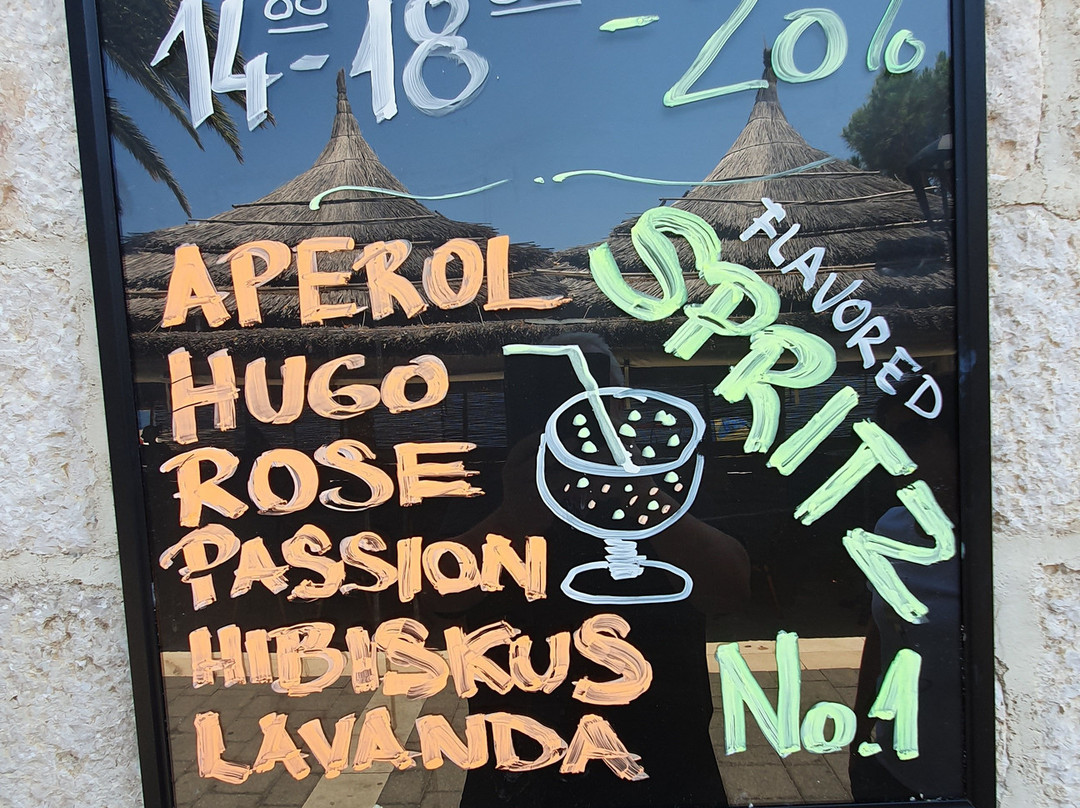 14⁰⁰-18⁰⁰ -20%
APEROL
HUGO
ROSE
PASSION
HIBISKUS
LAVANDA
FLAVORED
SPRITZ
No.1